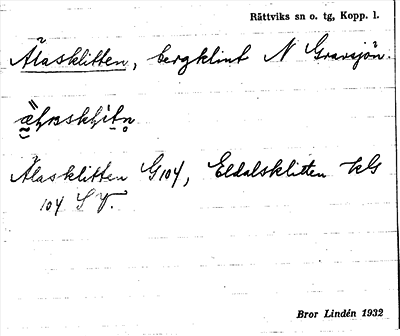 Rättviks sn o. tg, Kopp. l.
Älasklitten, bergklint N Gravsjön.
Älasklitten G104, Eldalsklitten kls
104 S V.
Bror Lindén 1932